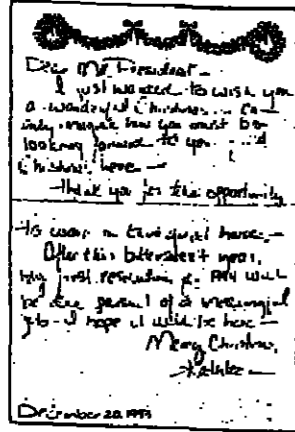 Dear Mr. President -
I just wanted to wish you
a wonderful Christmas ... I can
only imagine how you must be
looking forward to you
Christmas here -
Thank you for the opportunity
to work in this great house. -
After this bittersweet year,
my first resolution for 1994 will
be the pursuit of a meaningful
job - I hope it will be here -
Merry Christmas,
December 20, 1993